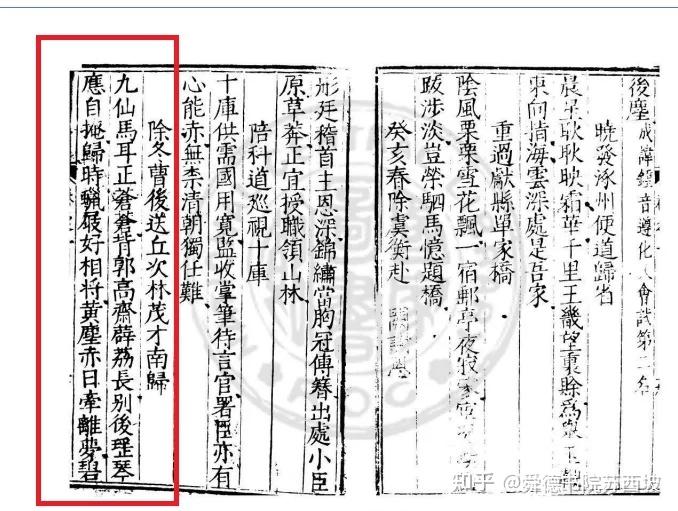 後塵 成諱鐸音遵化人會試第二名
曉發涿州便道歸省
晨星耿耿映霜華千里王畿望裏賒為
東向指海雲深處是吾家
重過獻縣單家橋
陰風栗栗雪花飄一宿郵亭夜寂寥
跋涉淡豈榮駟馬憶題橋
癸亥春除虞衡赴
彤廷稽首主恩深錦繡當胸冠傳簪出處小臣
原草莽正宜授職領山林
陪科道巡視十庫
十庫供需國用寬監收掌筆待言官署臣亦有
心能亦無柰清朝獨仕難
除冬曹後送丘次林茂才南歸
九仙馬耳正蒼蒼背郭高齋薜荔長別後瑤琴
應自掩歸時蠟屐好相將黃塵赤日牽離夢碧
知乎 @舜德书院苏西坡